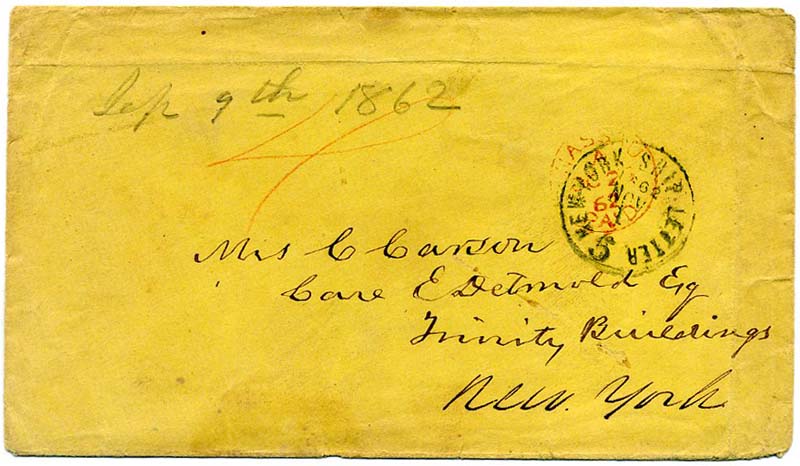 Sep 9th 1862
4
NEW YORK SHIP LETTER
NOV
6
62
PAID
Mrs C Carson
Care E Detmold Esq
Trinity Buildings
New. York